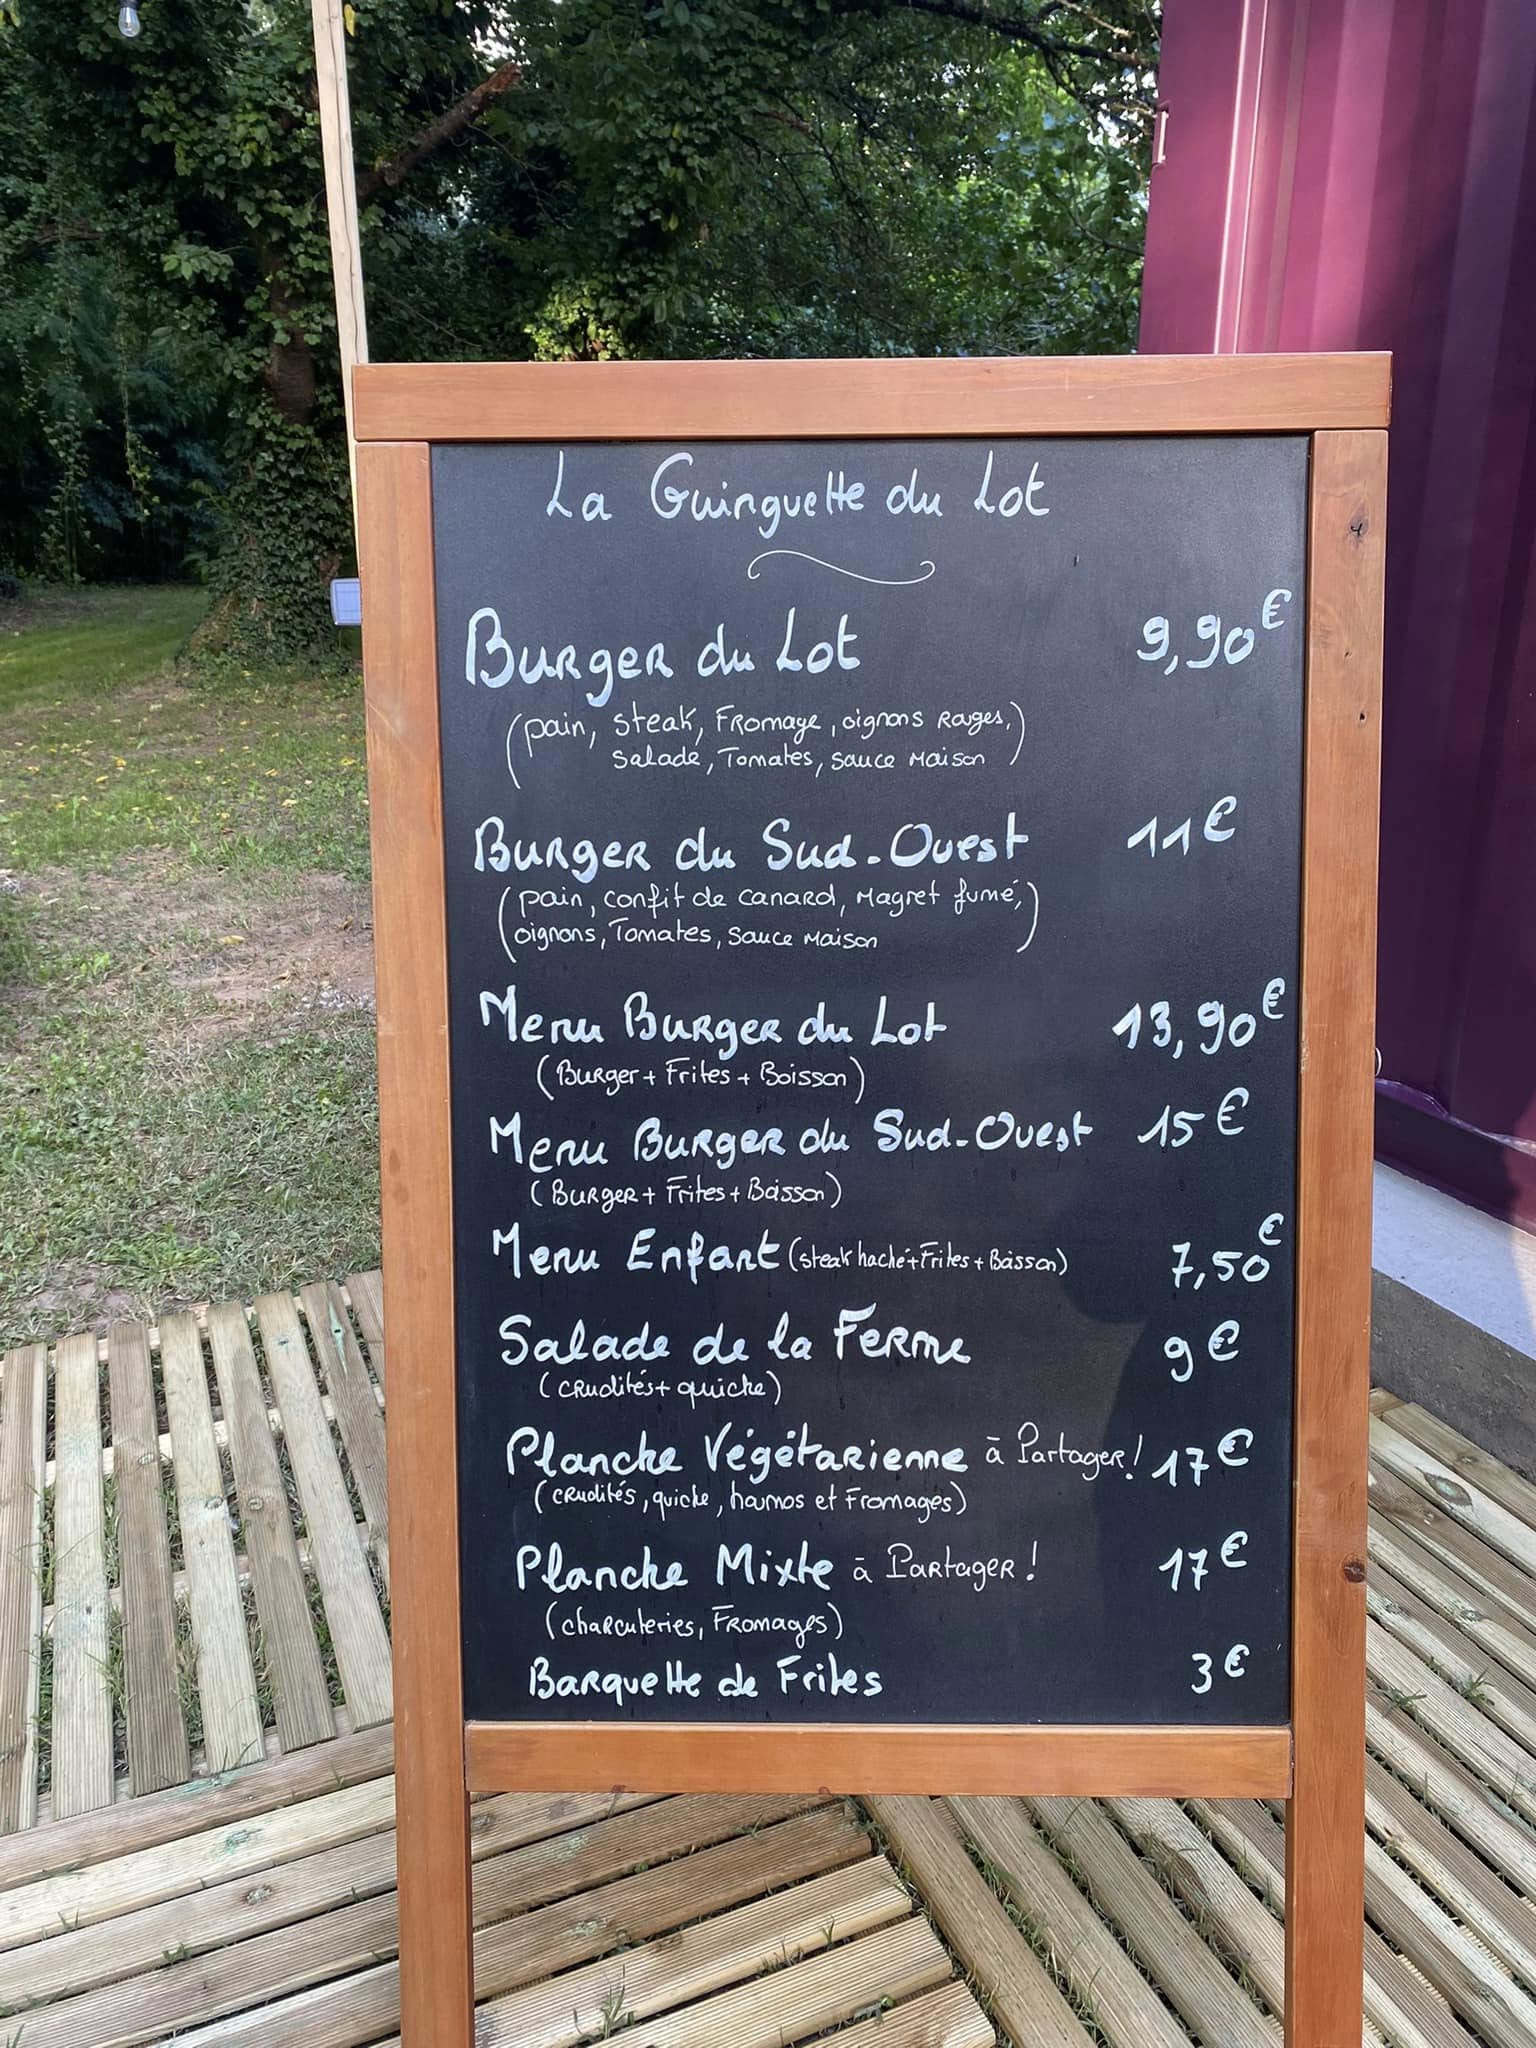 La Guinguette du Lot
Burger du Lot 9,90€
(pain, steak, Fromage, oignons Rouges,
salade, Tomates, sauce Maison)
Burger du Sud-Ouest 11€
(pain, confit de canard, Magret fumé,
oignons, Tomates, sauce Maison)
Menu Burger du Lot 13,90€
(Burger + Frites + Boisson)
Menu Burger du Sud-Ouest 15€
(Burger + Frites + Boisson)
Menu Enfant (steak haché + Frites + Boisson) 7,50€
Salade de la Ferme 9€
(crudités + quiche)
Planche Végétarienne à Partager! 17€
(crudités, quiche, houmos et Fromages)
Planche Mixte à Partager! 17€
(charcuteries, Fromages)
Barquette de Frites 3€